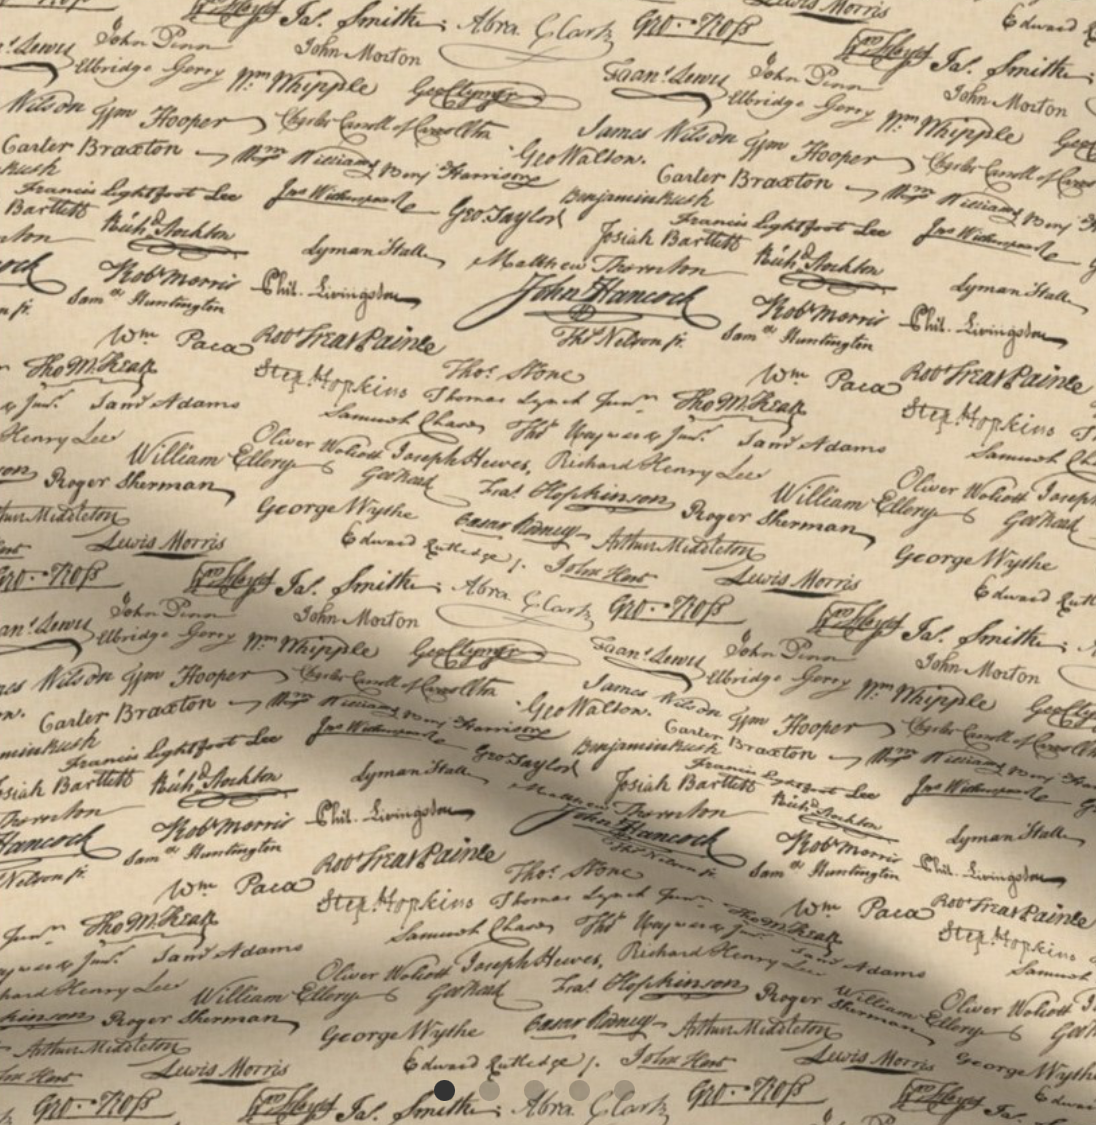 Lewis Morris
Jas. Smith. Abra Clark Geo. Ross Edward
Lewis John Penn John Morton Jas. Smith.
Elbridge Gerry Wm Whipple Geo Clymer Fran.s Lewis John Penn John Morton
Elbridge Gerry Wm Whipple
Wilson Wm Hooper Charles Carroll of Carrollton James Wilson Wm Hooper Charles Carroll of
Carter Braxton Wm Williams Benj Harrison Geo Walton. Carter Braxton Wm Williams Benj
Rush Francis Lightfoot Lee Jno Witherspoon Benjamin Rush Francis Lightfoot Lee Jno Witherspoon
Bartlett Rich.d Stockton Geo. Taylor Josiah Bartlett Rich.d Stockton
Lyman Hall Matthew Thornton Lyman Hall
Robt Morris Phil. Livingston John Hancock Robt Morris Phil. Livingston
Sam.el Huntington Tho.s Nelson jr. Sam.el Huntington
Wm Paca Robt Treat Paine Wm Paca Robt Treat Paine
Tho M:Kean Step. Hopkins Thos. Stone Tho M:Kean Step. Hopkins
Sam.l Adams Samuel Chase Thomas Lynch Jun.r Sam.l Adams Samuel
Thos Heyward Jun.r
Henry Lee Oliver Wolcott Joseph Hewes, Richard Henry Lee Oliver Wolcott Joseph
William Ellery Geo Read Fra.s Hopkinson William Ellery Geo Read
Roger Sherman George Wythe Roger Sherman George Wythe
Arthur Middleton Caesar Rodney Arthur Middleton
Lewis Morris Edward Rutledge /. John Hart Lewis Morris Edward
Geo. Ross Jas. Smith. Abra Clark Geo. Ross Jas. Smith.
Lewis John Penn John Morton Fran.s Lewis John Penn John Morton
Elbridge Gerry Wm Whipple Geo Clymer Elbridge Gerry Wm Whipple
Wilson Wm Hooper Charles Carroll of Carrollton James Wilson Wm Hooper
Carter Braxton Wm Williams Benj Harrison Geo Walton. Carter Braxton Wm Williams Benj
Rush Francis Lightfoot Lee Jno Witherspoon Benjamin Rush Francis Lightfoot Lee Jno Witherspoon
Bartlett Rich.d Stockton Geo. Taylor Josiah Bartlett Rich.d Stockton
Thornton Lyman Hall Matthew Thornton Lyman Hall
Hancock Robt Morris Phil. Livingston John Hancock Robt Morris Phil. Livingston
Nelson jr. Sam.el Huntington Tho.s Nelson jr. Sam.el Huntington
Wm Paca Robt Treat Paine Thos. Stone Wm Paca Robt Treat Paine
Tho M:Kean Step. Hopkins Thomas Lynch Jun.r Tho M:Kean Step. Hopkins
Sam.l Adams Samuel Chase Thos Heyward Jun.r Sam.l Adams Samuel
Henry Lee Oliver Wolcott Joseph Hewes, Richard Henry Lee Oliver Wolcott
William Ellery Geo Read Fra.s Hopkinson William Ellery
Roger Sherman George Wythe Caesar Rodney Roger Sherman George Wythe
Arthur Middleton Edward Rutledge /. Arthur Middleton
Lewis Morris John Hart Lewis Morris
Geo. Ross Jas. Smith. Abra Clark Geo. Ross Jas.